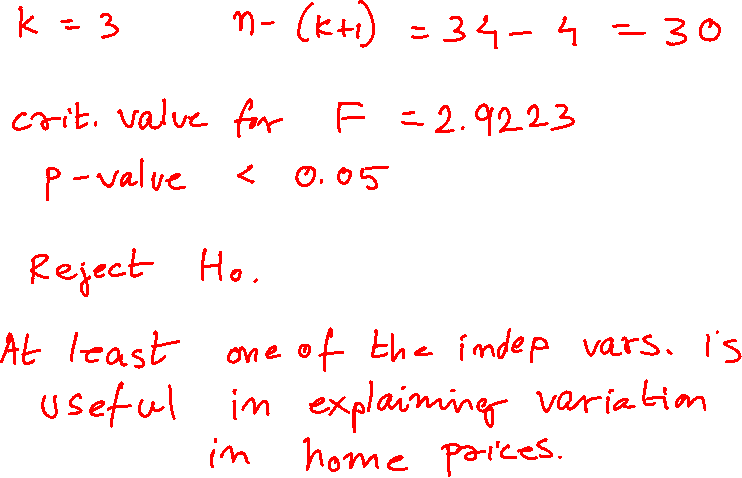 k = 3 n- (k+1) = 34 - 4 = 30
crit. value for F = 2.9223
p-value < 0.05
Reject Ho.
At least one of the indep vars. is
useful in explaining variation
in home prices.